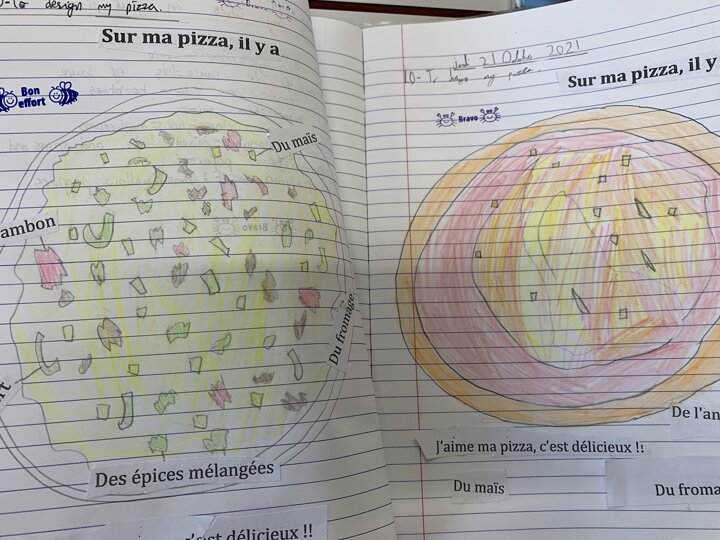 design my pizza.
Sur ma pizza, il y a
Bon
effort
Du maïs
ambon
Du fromage
Des épices mélangées
c'est délicieux !!
21 2021
LO- To my pizza.
Sur ma pizza, il y
Bravo
De l'an
J'aime ma pizza, c'est délicieux !!
Du maïs
Du froma